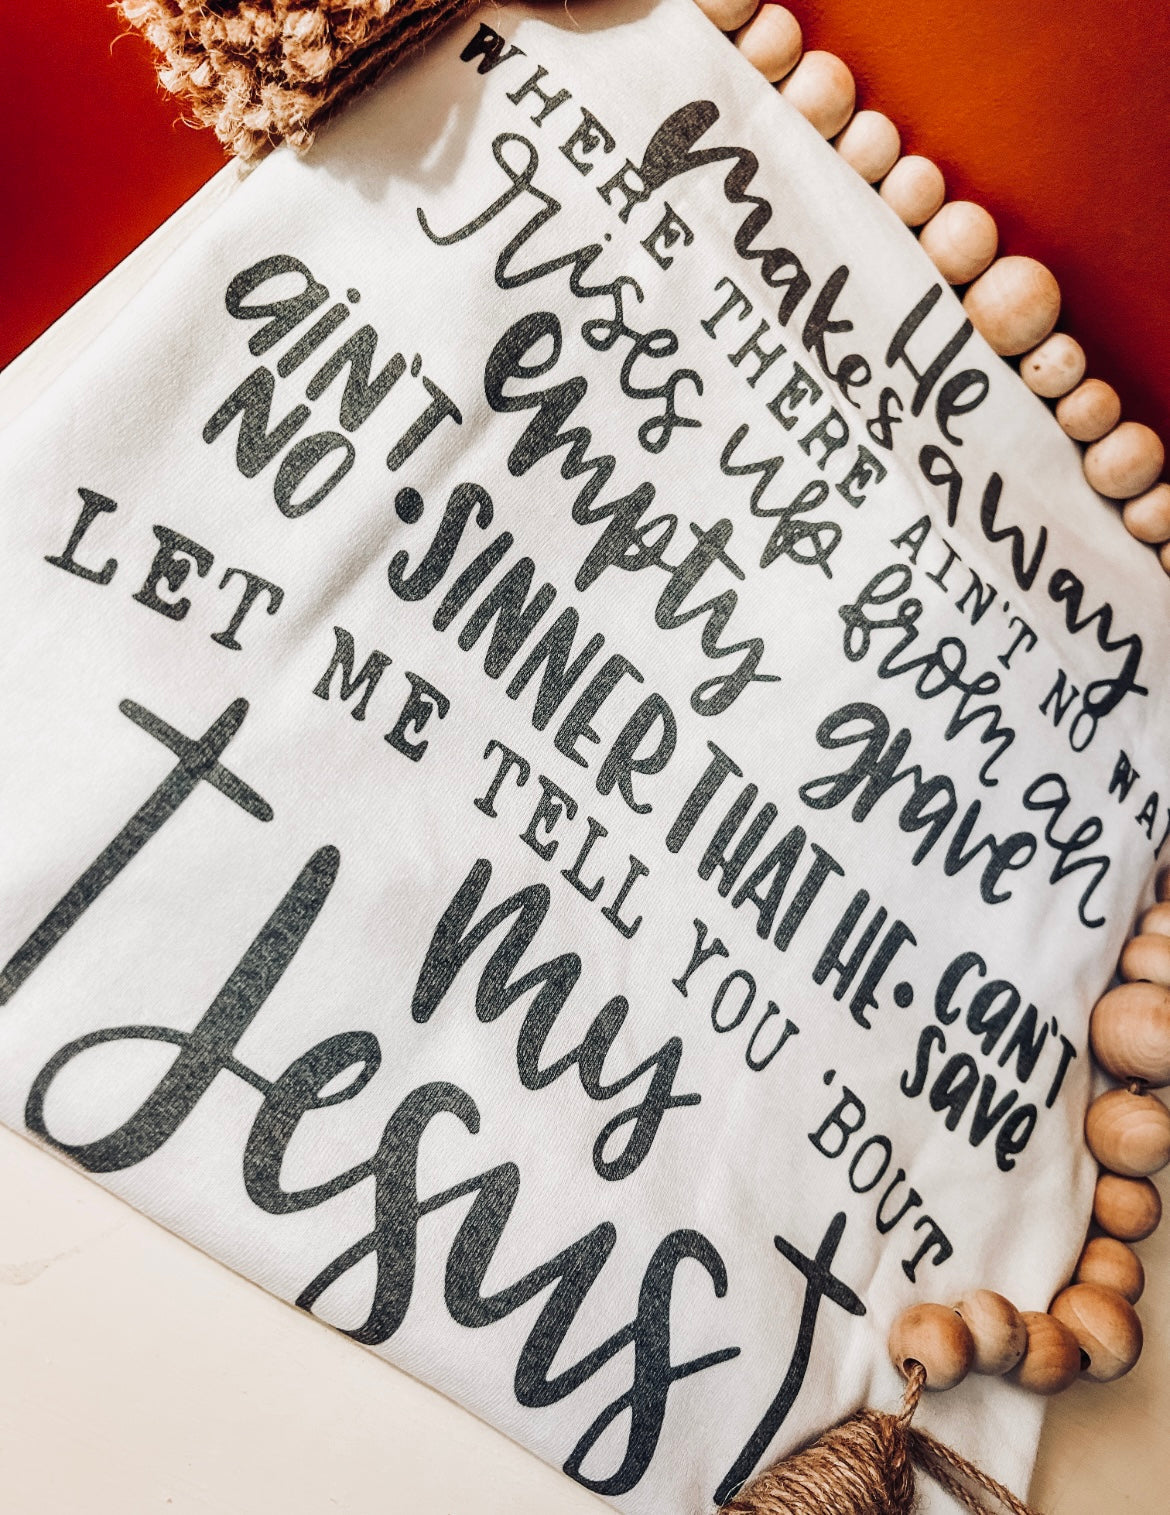 He
makes a way
WHERE THERE AIN'T NO WA
rises up from an
empty grave
AIN'T NO •SINNER THAT HE• CAN'T SAVE
LET ME TELL YOU 'BOUT
my
Jesus